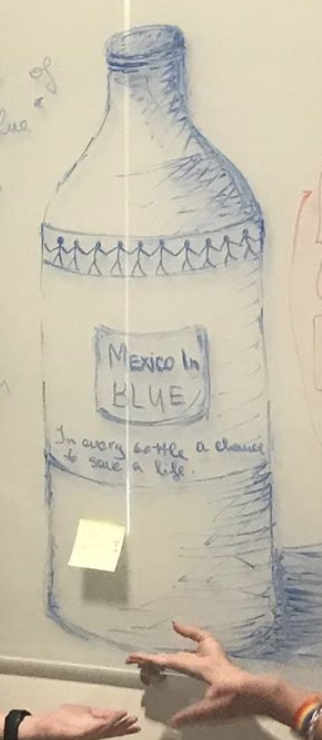 of
Mexico In
BLUE
In every bottle a chance
to save a life.